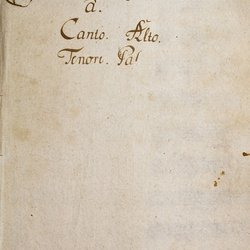 a.
Canto. Alto.
Tenore. Pal